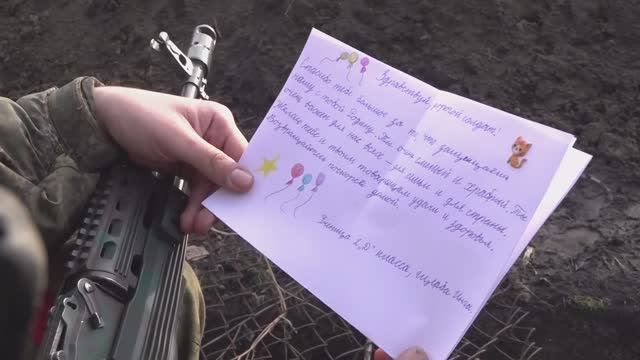 Здравствуй, дорогой солдат!
Спасибо тебе большое за то что защищаешь
нашу с тобой Родину. Ты очень смелый и храбрый. Ты
очень важен для нас всех, для семьи и для страны.
Желаю тебе и твоим товарищам удачи и здоровья.
Возвращайтесь поскорей домой.
Ученица 2 „Д" класса,